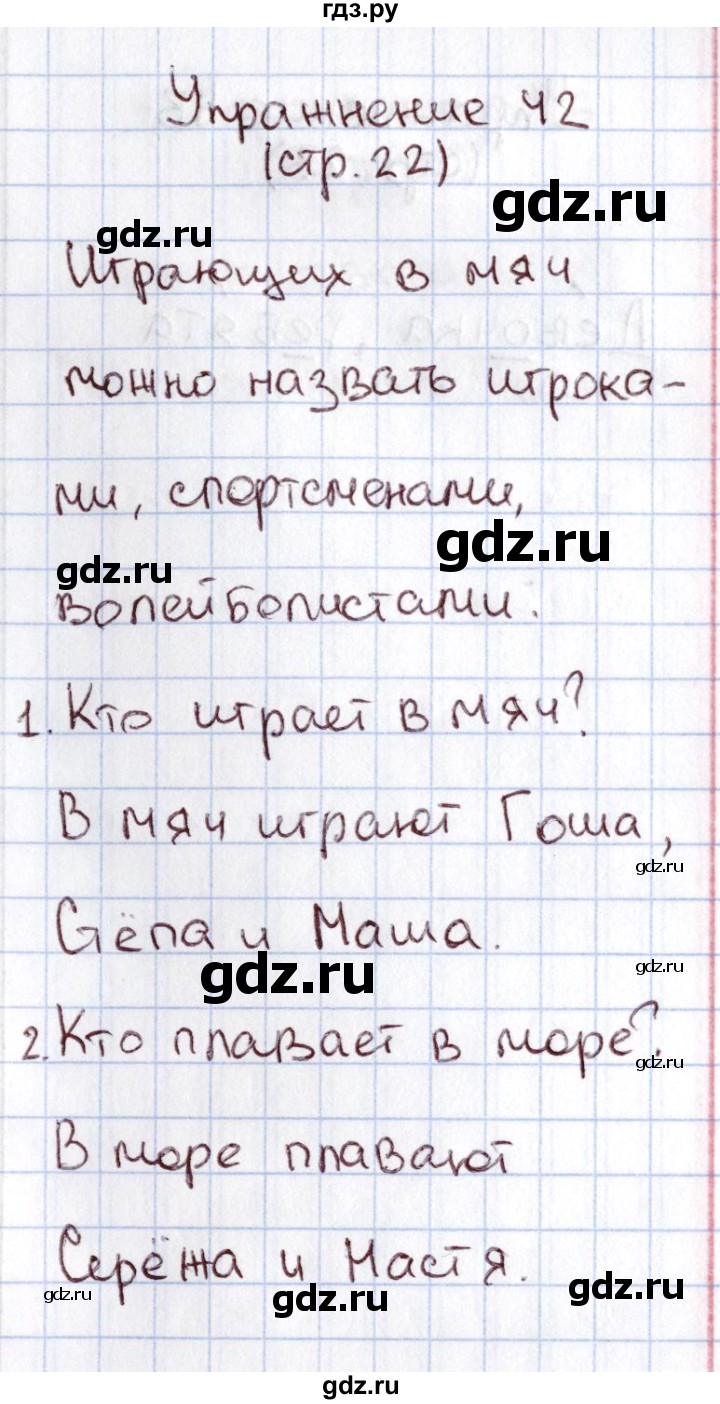 гдз.ру
Упражнение 42
(стр. 22)
gdz.ru
gdz.ru
Играющих в мяч
можно назвать игрока-
ми, спортсменами,
gdz.ru
gdz.ru
волейболистами.
1. Кто играет в мяч?
В мяч играют Гоша,
gdz.ru
Стёпа и Маша.
gdz.ru
gdz.ru
2. Кто плавает в море?
gdz.ru
В море плавают
Серёжа и Настя.
gdz.ru
gdz.ru
gdz.ru
gdz.ru